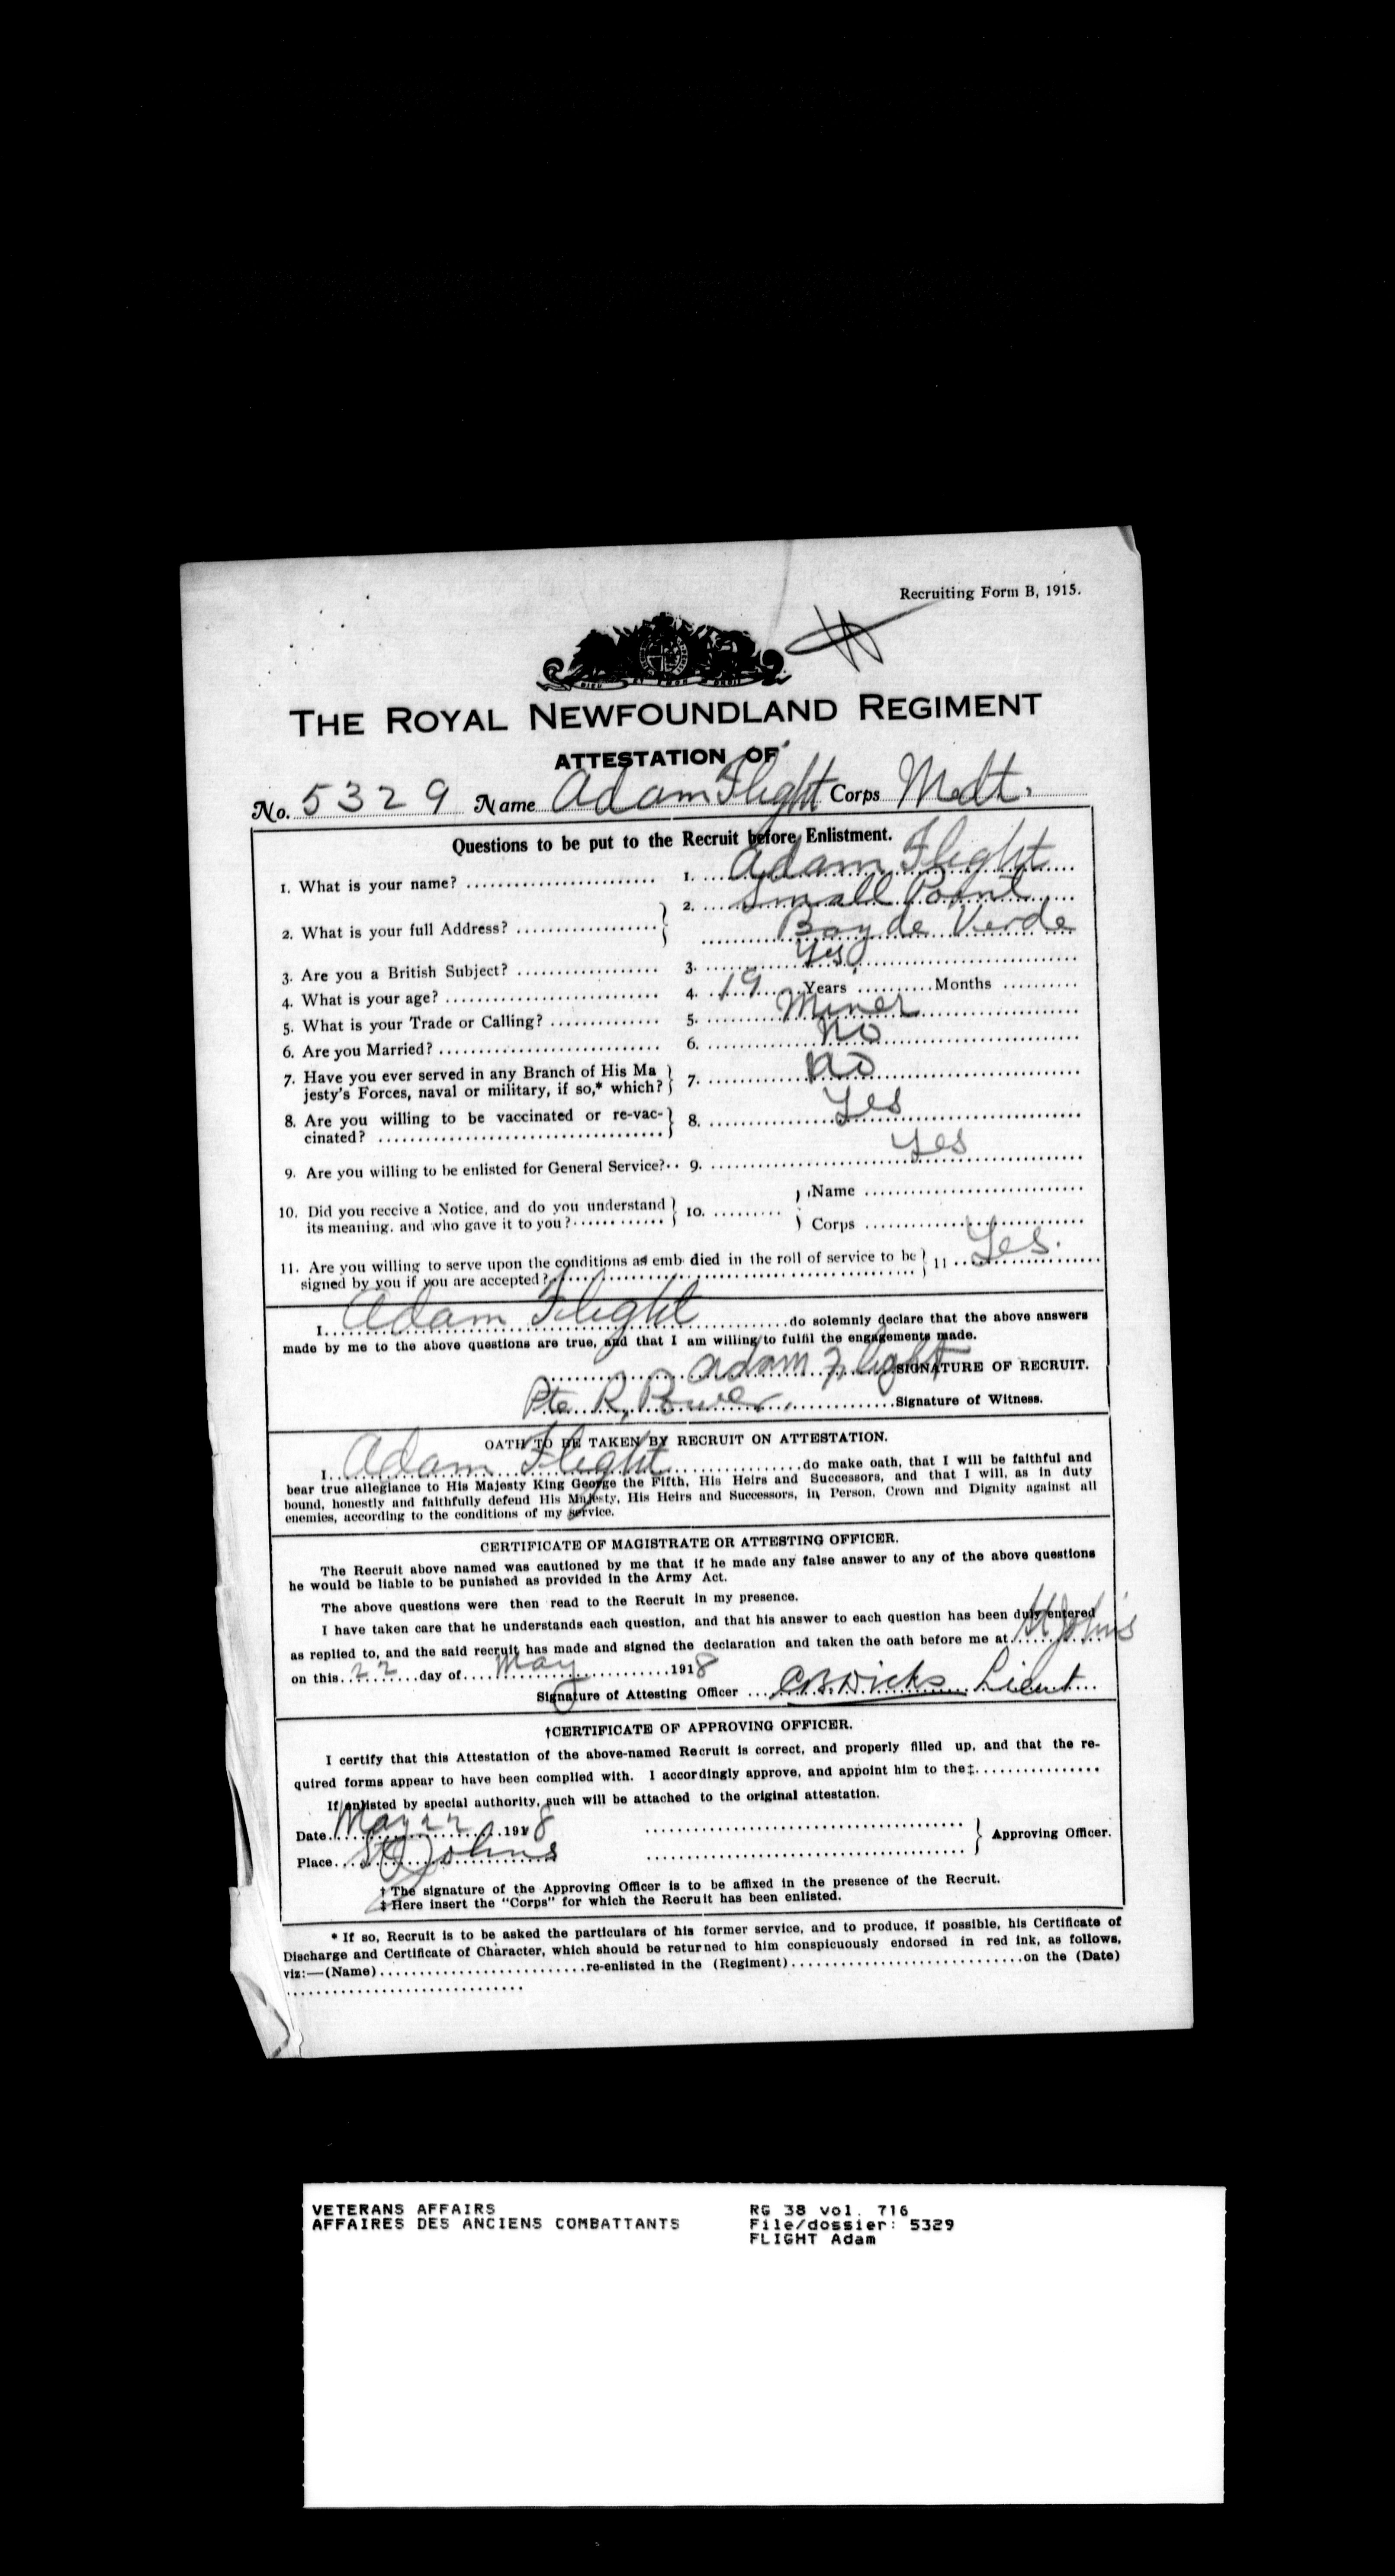 Recruiting Form B, 1915.
THE ROYAL NEWFOUNDLAND REGIMENT
ATTESTATION OF
No. 5329 Name Adam Flight Corps Mdt.
Questions to be put to the Recruit before Enlistment.
1. What is your name? 1. Adam Flight
2. What is your full Address? 2. Small Point
Bay de Verde
3. Are you a British Subject? 3. Yes
4. What is your age? 4. 19 Years Months
5. What is your Trade or Calling? 5. Miner
6. Are you Married? 6. No
7. Have you ever served in any Branch of His Ma
jesty's Forces, naval or military, if so,* which? 7. No
8. Are you willing to be vaccinated or re-vac-
cinated? 8. Yes
9. Are you willing to be enlisted for General Service? 9. Yes
10. Did you receive a Notice, and do you understand
its meaning, and who gave it to you? 10. Name
Corps
11. Are you willing to serve upon the conditions as emb died in the roll of service to be
signed by you if you are accepted? 11 Yes.
I Adam Flight do solemnly declare that the above answers
made by me to the above questions are true, and that I am willing to fulfil the engagements made.
Adam Flight SIGNATURE OF RECRUIT.
Pte R. Power Signature of Witness.
OATH TO BE TAKEN BY RECRUIT ON ATTESTATION.
I Adam Flight do make oath, that I will be faithful and
bear true allegiance to His Majesty King George the Fifth, His Heirs and Successors, and that I will, as in duty
bound, honestly and faithfully defend His Majesty, His Heirs and Successors, in Person, Crown and Dignity against all
enemies, according to the conditions of my service.
CERTIFICATE OF MAGISTRATE OR ATTESTING OFFICER.
The Recruit above named was cautioned by me that if he made any false answer to any of the above questions
he would be liable to be punished as provided in the Army Act.
The above questions were then read to the Recruit in my presence.
I have taken care that he understands each question, and that his answer to each question has been duly entered
as replied to, and the said recruit has made and signed the declaration and taken the oath before me at St John's
on this 22 day of May 1918
Signature of Attesting Officer Dicks Lieut
†CERTIFICATE OF APPROVING OFFICER.
I certify that this Attestation of the above-named Recruit is correct, and properly filled up, and that the re-
quired forms appear to have been complied with. I accordingly approve, and appoint him to the‡
If enlisted by special authority, such will be attached to the original attestation.
Date May 22 1918
Approving Officer.
Place St Johns
† The signature of the Approving Officer is to be affixed in the presence of the Recruit.
‡ Here insert the "Corps" for which the Recruit has been enlisted.
* If so, Recruit is to be asked the particulars of his former service, and to produce, if possible, his Certificate of
Discharge and Certificate of Character, which should be returned to him conspicuously endorsed in red ink, as follows,
viz:—(Name) re-enlisted in the (Regiment) on the (Date)
VETERANS AFFAIRS RG 38 vol. 716
AFFAIRES DES ANCIENS COMBATTANTS File/dossier: 5329
FLIGHT Adam